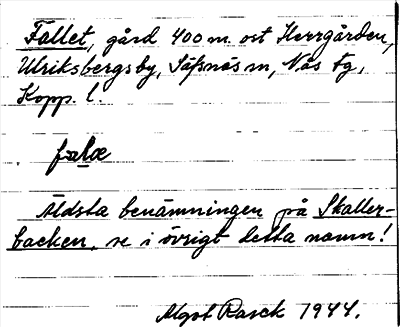 Fallet, gård 400 m. ost Herrgården,
Ulriksbergsby, Säfsnäs sn, Nås tg,
Kopp. l.
falæ
Äldsta benämningen på Skaller-
backen, se i övrigt detta namn!
Algot Rasck 1944.